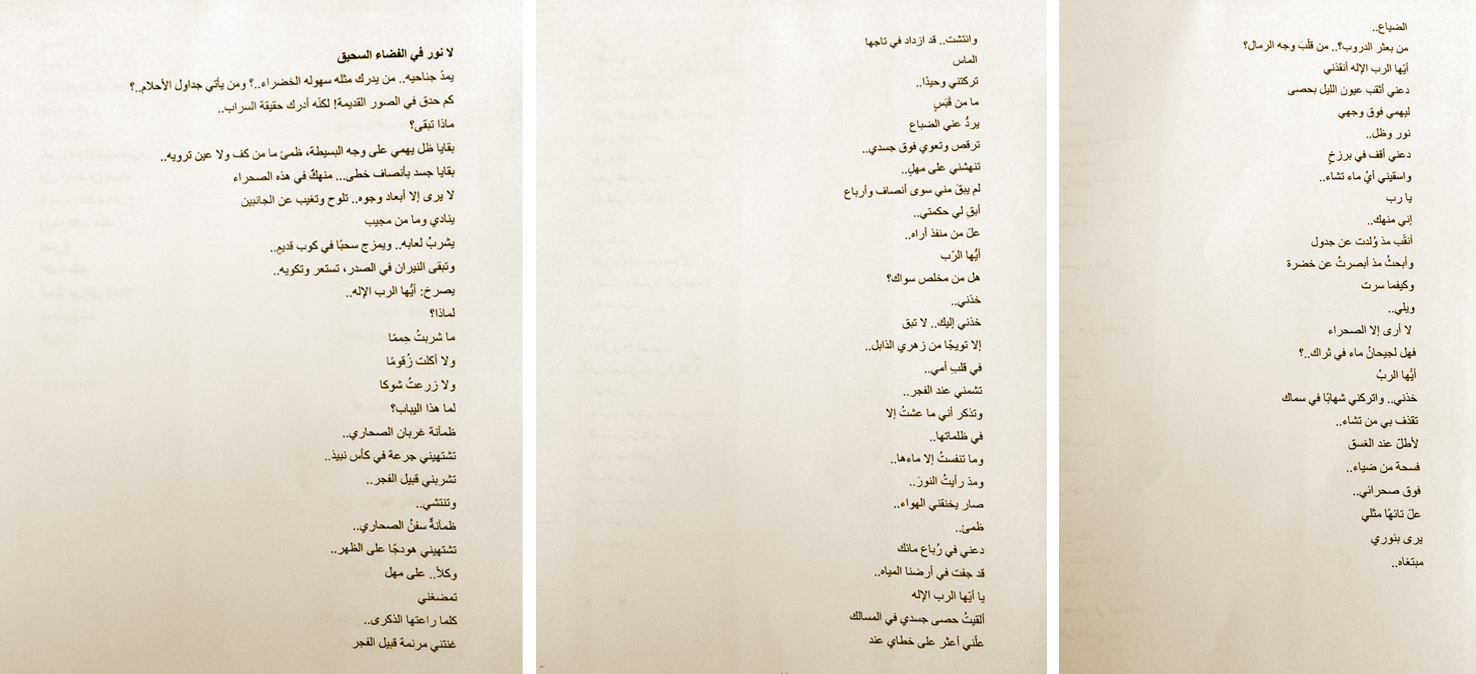 لا نور في الفضاء السحيق
يمدّ جناحيه.. من يدرك مثله سهوله الخضراء..؟ ومن يأتي جداول الأحلام..؟
كم حدق في الصور القديمة! لكنّه أدرك حقيقة السراب..
ماذا تبقى؟
بقايا ظل يهمي على وجه البسيطة، ظمئ ما من كف ولا عين ترويه..
بقايا جسد بأنصاف خطى... منهكٌ في هذه الصحراء
لا يرى إلا أبعاد وجوه.. تلوح وتغيب عن الجانبين
ينادي وما من مجيب
يشربُ لعابه.. ويمزج سحبًا في كوب قديمٍ..
وتبقى النيران في الصدر، تستعر وتكويه..
يصرخ: أيُّها الرب الإله..
لماذا؟
ما شربتُ حِممًا
ولا أكلت زُقومًا
ولا زرعتُ شوكا
لما هذا اليباب؟
ظمآنة غربان الصحاري..
تشتهيني جرعة في كأس نبيذ..
تشربني قبيل الفجر..
وتنتشي..
ظمآنةٌ سفنُ الصحاري..
تشتهيني هودجًا على الظهر..
وكلأ.. على مهل
تمضغني
كلما راعتها الذكرى..
غنتني مرنمة قبيل الفجر
وانتشت.. قد ازداد في تاجها
الماس
تركتني وحيدًا..
ما من قَبَسٍ
يردُّ عني الضباع
ترقص وتعوي فوق جسدي..
تنهشني على مهلٍ..
لم يبقَ مني سوى أنصاف وأرباع
أبقِ لي حكمتي..
علّ من منفذ أراه..
أيُّها الرّب
هل من مخلص سواك؟
خذني..
خذني إليك.. لا تبق
إلا تويجًا من زهري الذابل..
في قلبِ أمي..
تشمني عند الفجر..
وتذكر أني ما عشتُ إلا
في ظلماتها..
وما تنفستُ إلا ماءها..
ومذ رأيتُ النورَ..
صار يخنقني الهواء..
ظمئ..
دعني في رُباع مائك
قد جفت في أرضنا المياه..
يا أيّها الرب الإله
ألقيتُ حصى جسدي في المسالك
علّني أعثر على خطاي عند
الضياع..
من بعثر الدروب؟.. من قلّبَ وجه الرمال؟
أيّها الرب الإله أنقذني
دعني أثقب عيون الليل بحصى
ليهمي فوق وجهي
نور وظل..
دعني أقف في برزخٍ
واسقيني أيُّ ماء تشاء..
يا رب
إني منهك..
أنقّب مذ وُلدت عن جدول
وأبحثُ مذ أبصرتُ عن خضرة
وكيفما سرت
ويلي..
لا أرى إلا الصحراء
فهل لجيحانُ ماء في ثراك..؟
أيُّها الربُ
خذني.. واتركني شهابًا في سماك
تقذف بي من تشاء..
لأطلّ عند الغسق
فسحة من ضياء..
فوق صحرائي..
علّ تائهًا مثلي
يرى بنوري
مبتغاه..